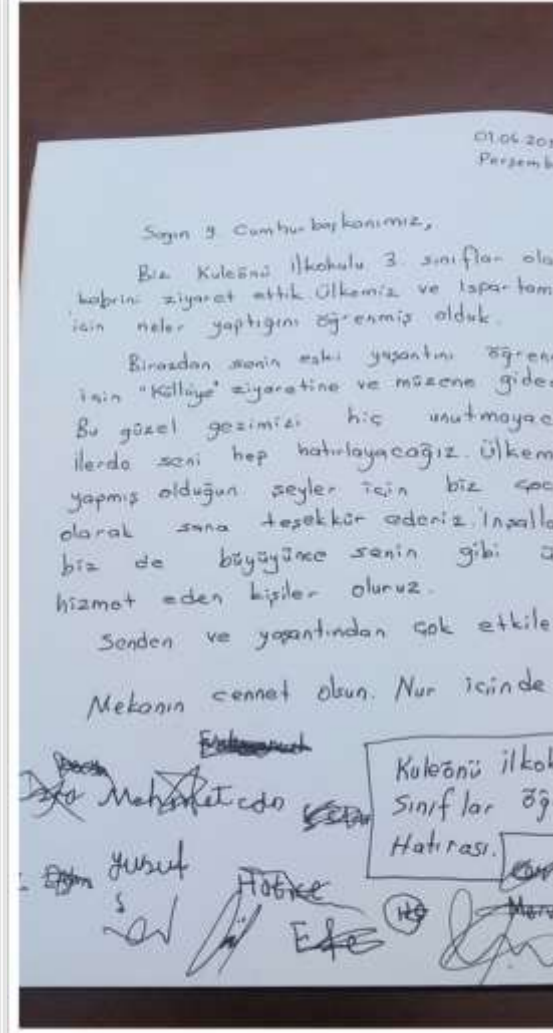 01.06.20
Perşemb
Sayın 9 Cumhurbaşkanımız,
Biz Kuleönü İlkokulu 3. sınıflar ola
kabrini ziyaret ettik Ülkemiz ve Ispartam
için neler yaptığını öğrenmiş olduk.
Birazdan senin eski yaşantını öğren
için "Külliye" ziyaretine ve müzene gide
Bu güzel gezimizi hiç unutmayac
ilerde seni hep hatırlayacağız. Ülkem
yapmış olduğun şeyler için biz çoc
olarak sana teşekkür ederiz. İnşalla
biz de büyüyünce senin gibi ü
hizmet eden kişiler oluruz.
Senden ve yaşantından çok etkile
Mekanın cennet olsun. Nur içinde
Kuleönü ilkok
Sınıflar öğ
Hatırası.
Mehmet
Yusuf
Hatice
Efe